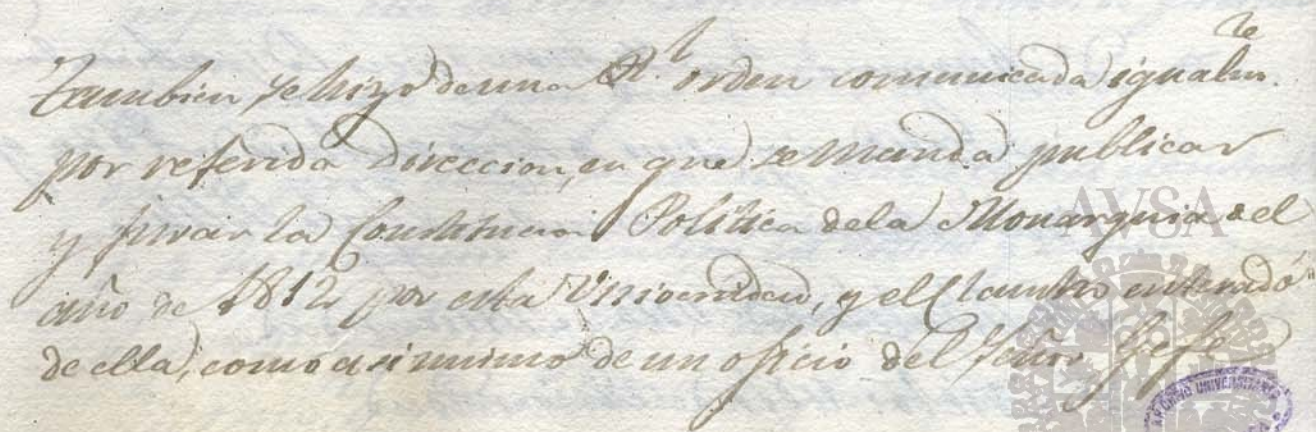 Tambien se hizo de una Rl. orden comunicada igualmte.
por referida Direccion, en que se manda publicar
y jurar la Constitucion Politica de la Monarquia del
año de 1812 por esta Universidad, y el Claustro enterado
de ella, como asi mismo de un oficio del Señor Gefe
AVSA
ARCHIVO UNIVERSITARIO